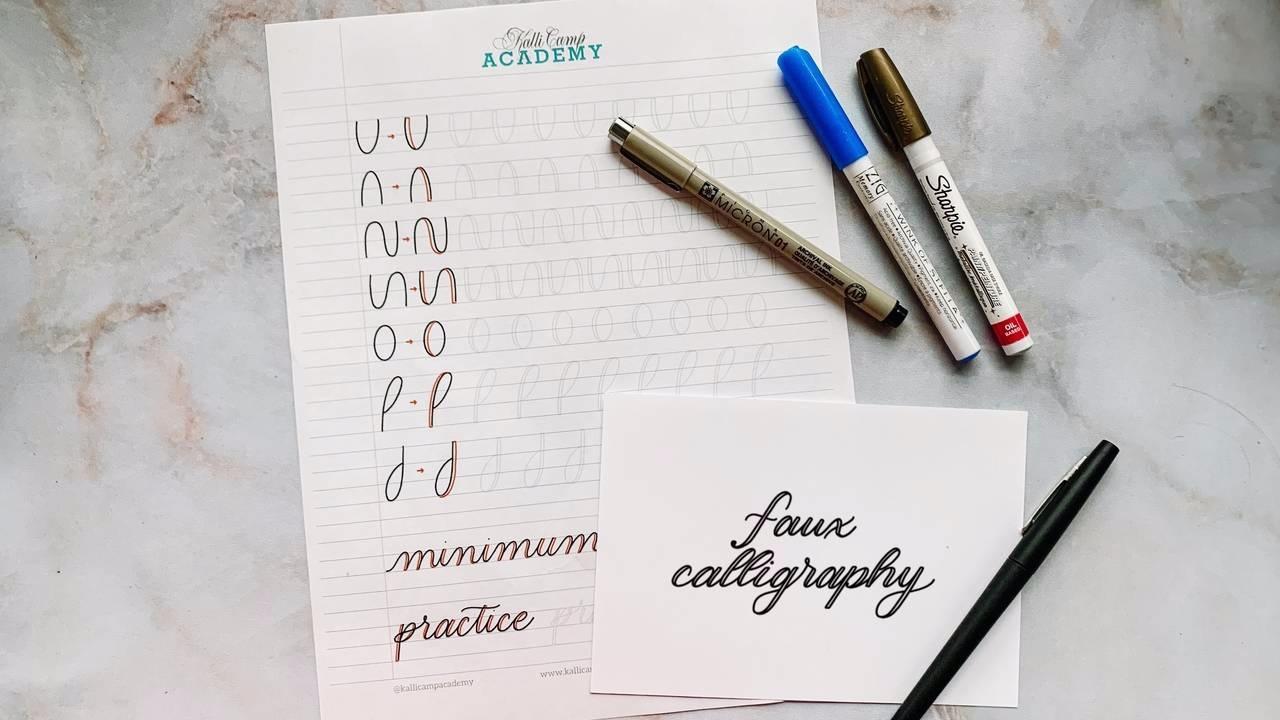 Kalli Camp
ACADEMY
minimum
practice
@kallicampacademy
faux
calligraphy
MICRON 01
ARCHIVAL INK
ZIG
Memory
WINK OF STELLA
Sharpie
Sharpie
OIL
BASED